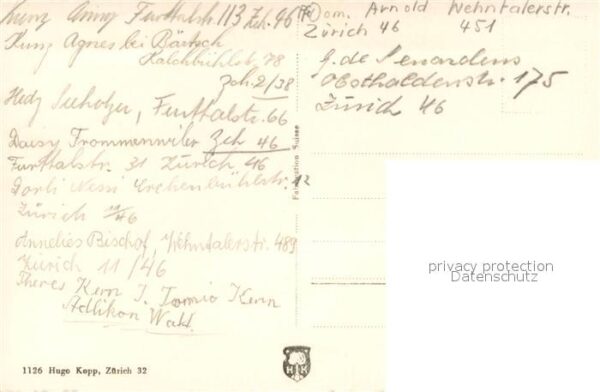 Kunz Anny Furttalstr. 113 Zch. 46
Kunz Agnes bei Bärtsch
Kalchbühlstr. 78
Zch. 2/38
Hedy Seeholzer, Furttalstr. 66
Daisy Frommenwiler Zch 46
Furttalstr. 31 Zürich 46
Dorli Nessi Lerchenbühlstr. 12
Zürich 11/46
Annelies Bischof, Wehntalerstr. 489
Zürich 11/46
Theres Kern J. Kern
Adlikon Watt.
Dom. Arnold Wehntalerstr.
Zürich 46 451
G. de Senardens
Obsthaldenstr. 175
Zürich 46
Fabrication Suisse
privacy protection
Datenschutz
1126 Hugo Kopp, Zürich 32
HK